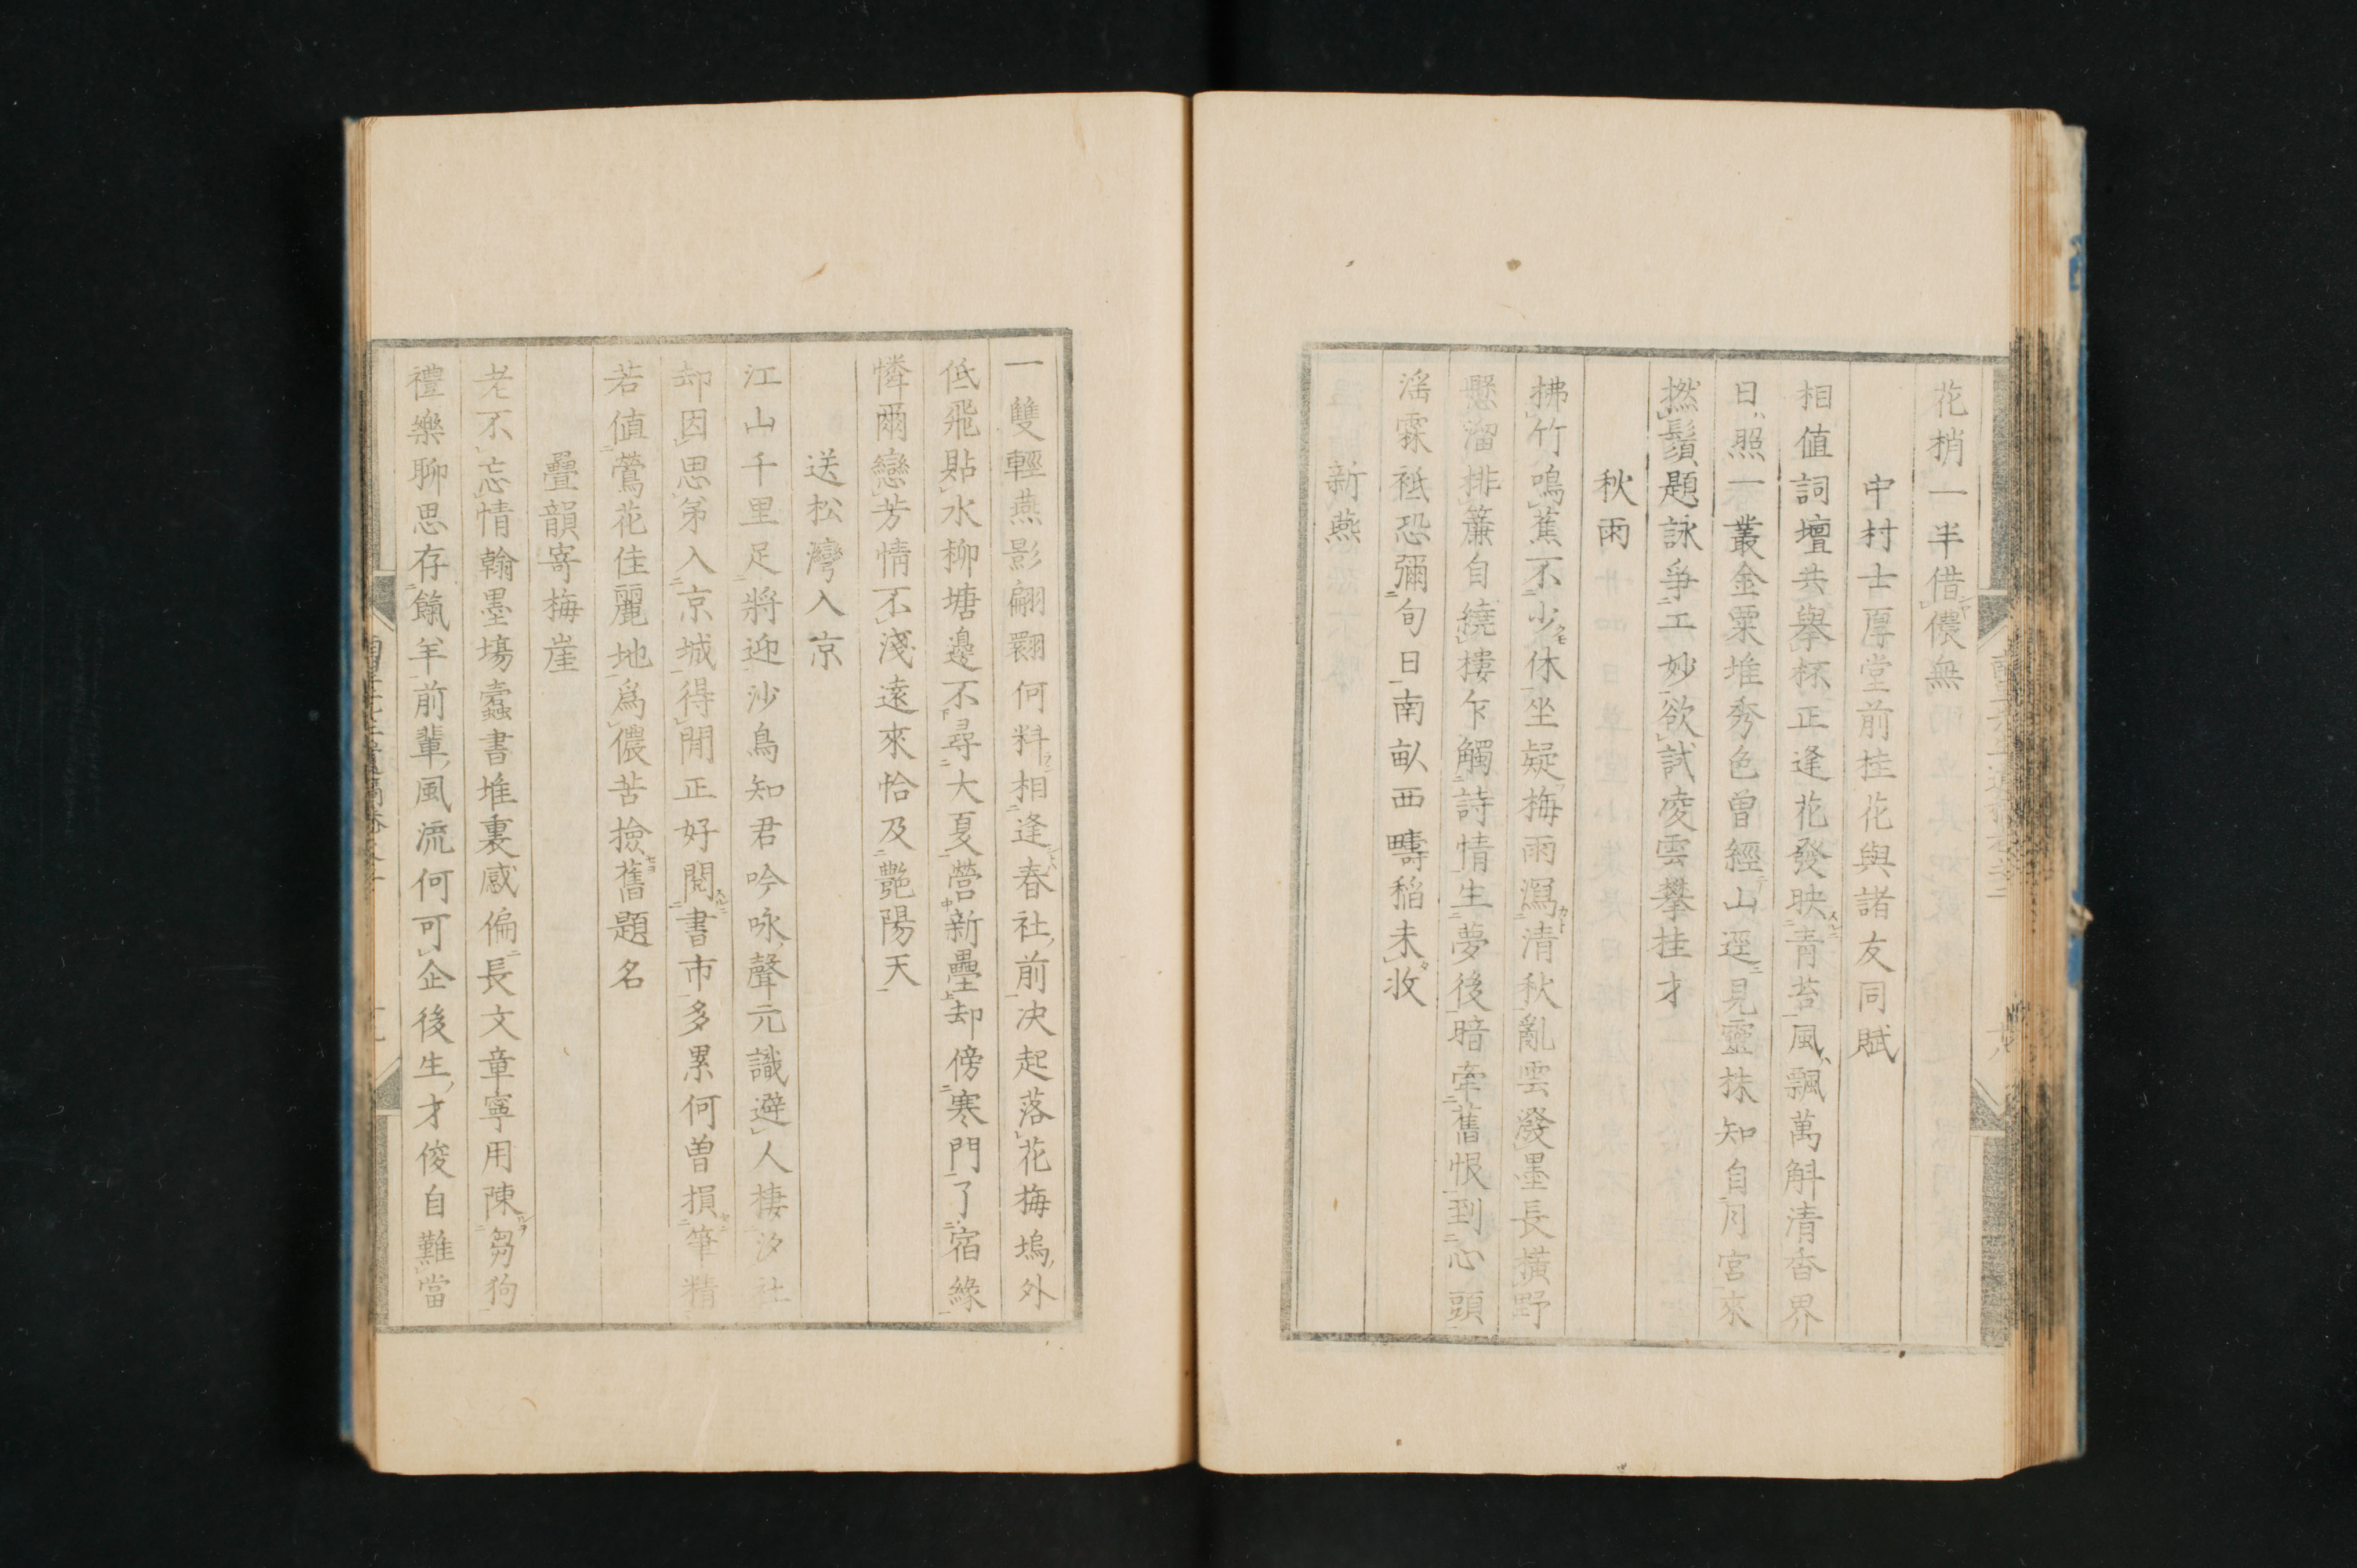 花梢一半借儂無
中村士厚堂前桂花與諸友同賦
相值詞壇共舉杯正逢花發映青苔風飄萬斛清香界
日照一叢金粟堆秀色曽經山逕見靈株知自月宮來
撚鬚題詠爭工妙欲試凌雲攀桂才
秋雨
拂竹鳴蕉不少休坐疑梅雨瀉清秋亂雲潑墨長橫野
懸溜排簷自繞樓乍觸詩情生夢後暗牽舊恨到心頭
淫霖祗恐彌旬日南畝西疇稻未收
新燕
一雙輕燕影翩翾何料相逢春社前决起落花梅塢外
低飛貼水柳塘邊不尋大夏營新壘却傍寒門了宿緣
憐爾戀芳情不淺遠來恰及艷陽天
送松灣入京
江山千里足將迎沙鳥知君吟咏聲元識避人棲汐社
却因思弟入京城得閒正好閱書市多累何曽損筆精
若值鶯花佳麗地爲儂苦撿舊題名
疊韻寄梅崖
老不忘情翰墨塲蠹書堆裏感偏長文章寧用陳芻狗
禮樂聊思存餼羊前輩風流何可企後生才俊自難當